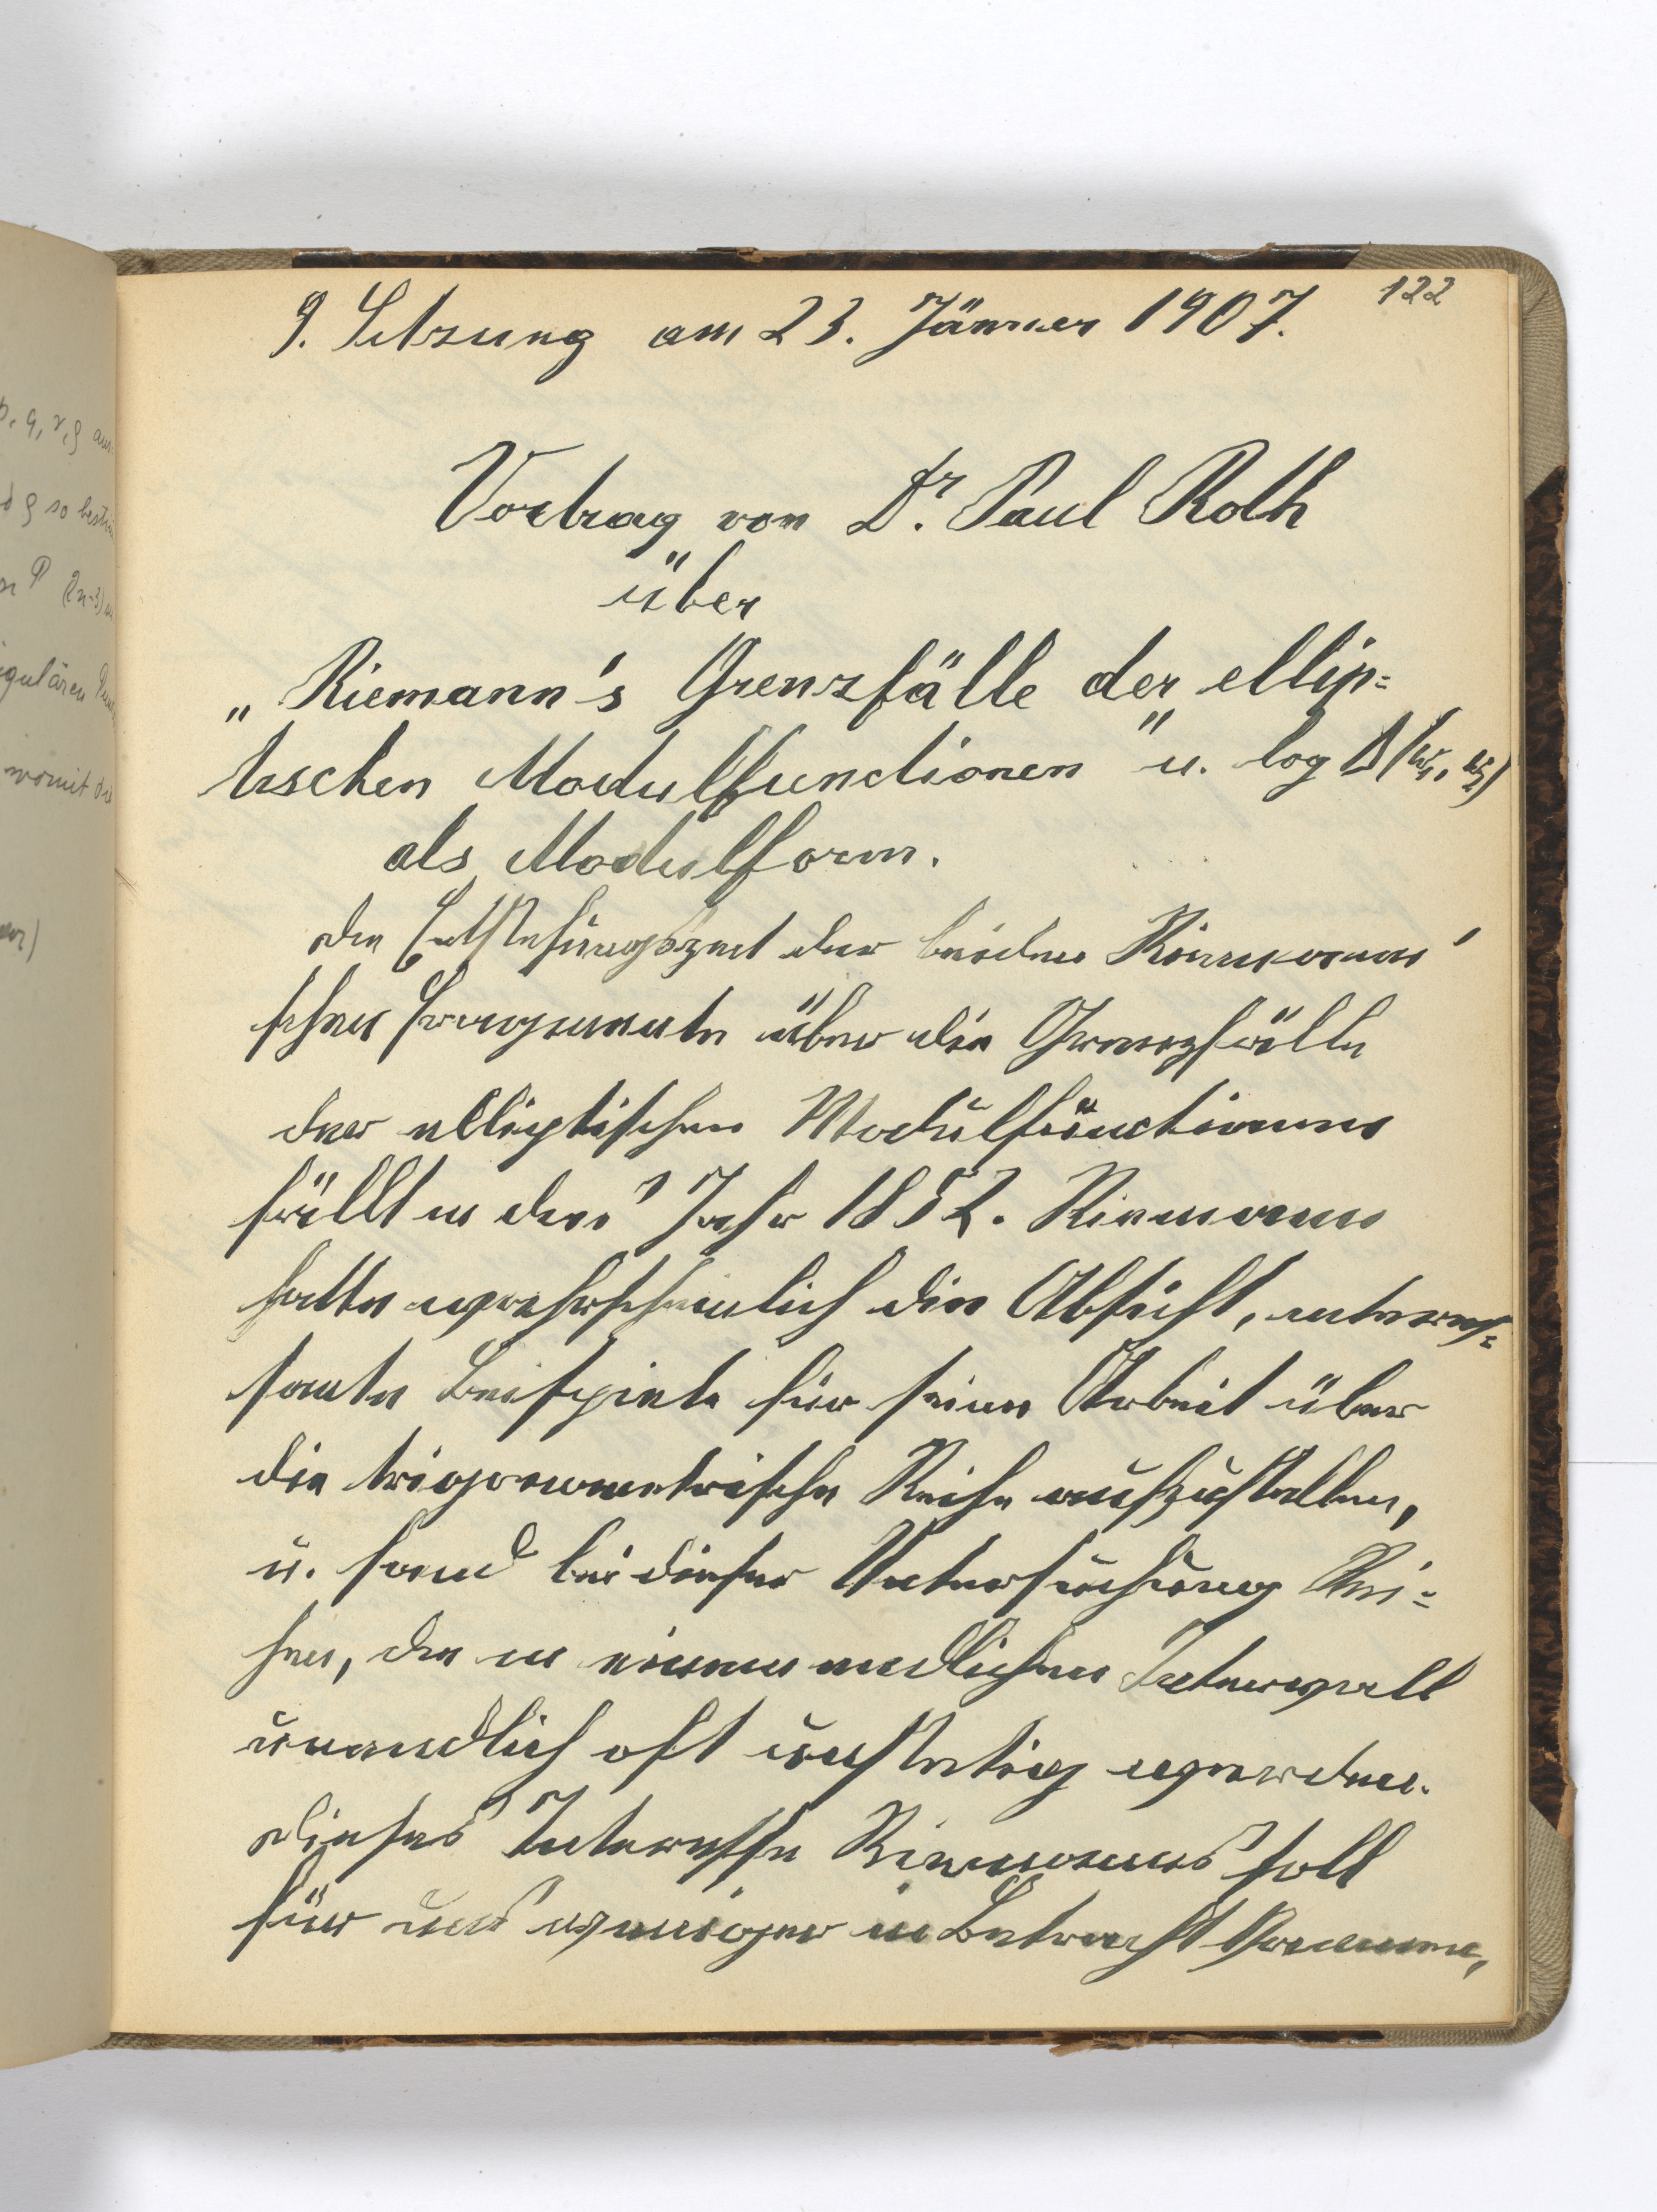 122
9. Sitzung am 23. Jänner 1907.
Vortrag von Dr. Paul Roth
über
„Riemann's Grenzfälle der ellip=
tischen Modulfunctionen" u. log Δ(ω₁, ω₂)
als Modulform.
Die Entstehungszeit der beiden Riemann'
schen Fragmente über die Grenzfälle
der elliptischen Modulfunctionen
fällt in das Jahr 1852. Riemann
hatte wahrscheinlich die Absicht, interes=
sante Beispiele für seine Arbeit über
die trigonometrische Reihe aufzustellen,
u. fand bei dieser Untersuchung Rei=
hen, die in einem endlichen Intervall
unendlich oft unstetig werden.
Dieses Interesse Riemanns soll
für uns weniger in Betracht kommen,
p, q, r, ϱ aus
ϱ so
(2n-3)
womit die